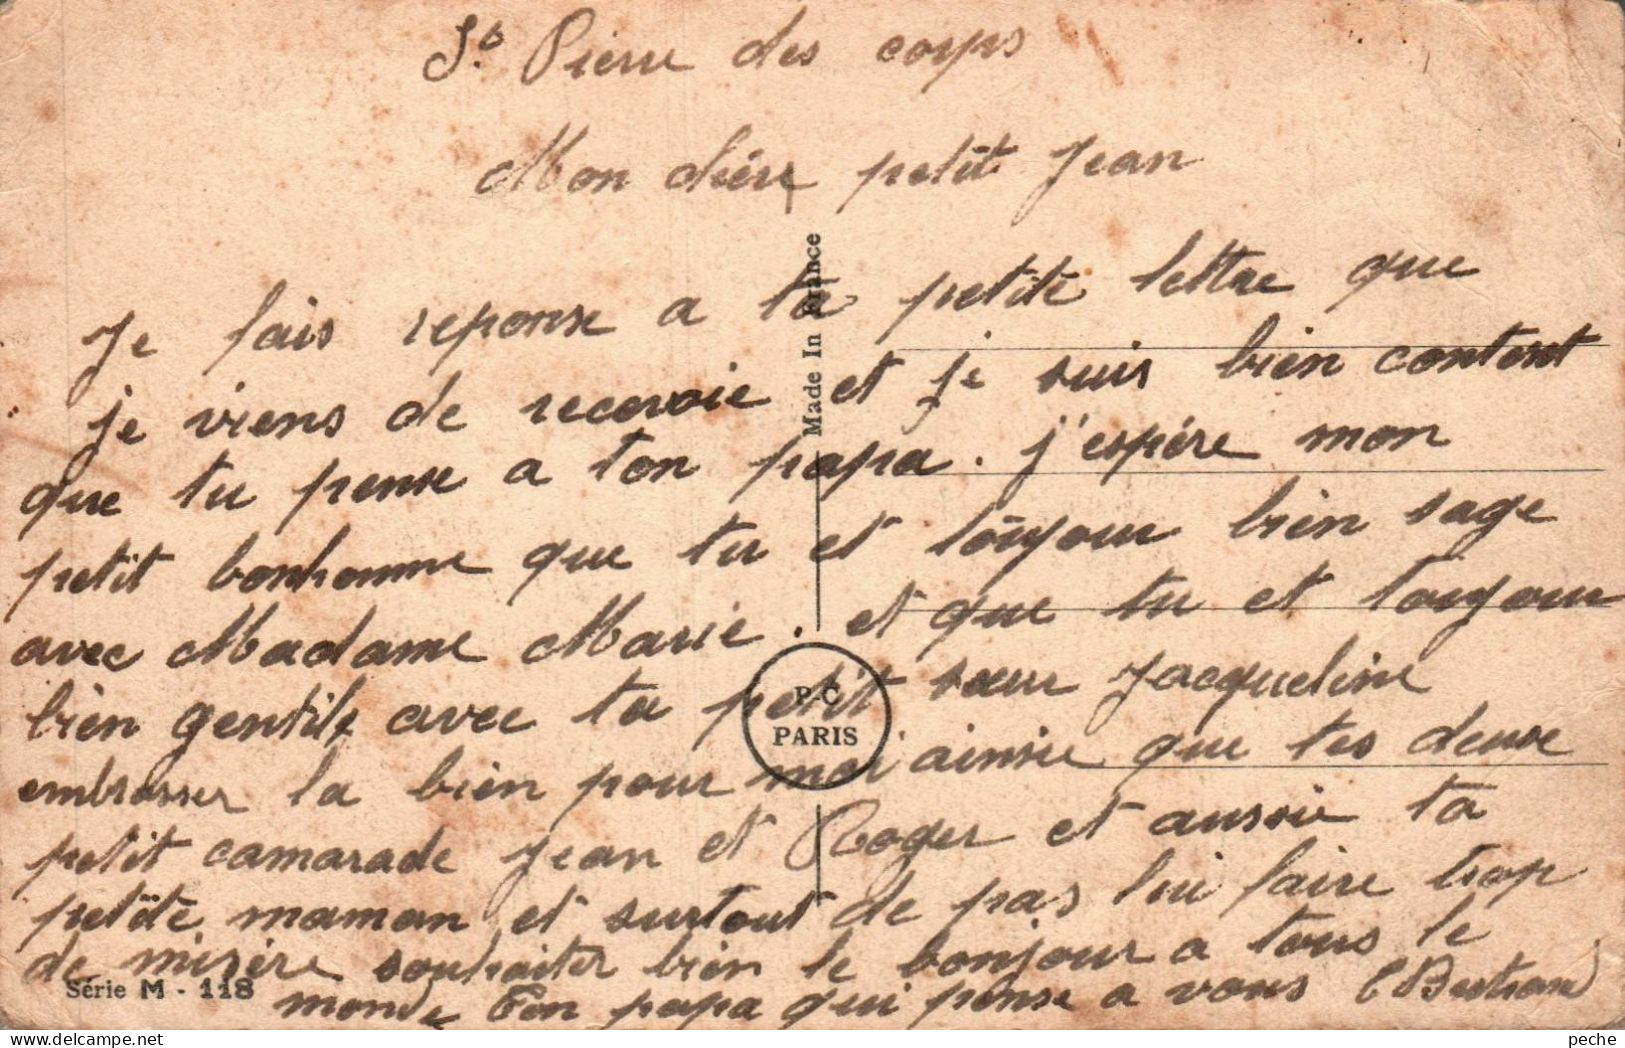 St. Pierre des corps
Mon chére petit Jean
Je fais reponse a ta petite lettre que
je viens de recevoie et je suis bien content
que tu pense a ton papa. j'espére mon
petit bonhomme que tu et toujour bien sage
avec Madame Marie. et que tu et toujour
bien gentils avec ta petit sœur Jacqueline
embrasser la bien pour moi ainsie que tes deuxe
petit camarade Jean et Roger et aussie ta
petite maman et surtout de pas lui faire trop
de misère souhaiter bien le bonjour a tous le
monde Ton papa qui pense a vous Bertrand
Made In France
P-C
PARIS
Série M - 118
peche